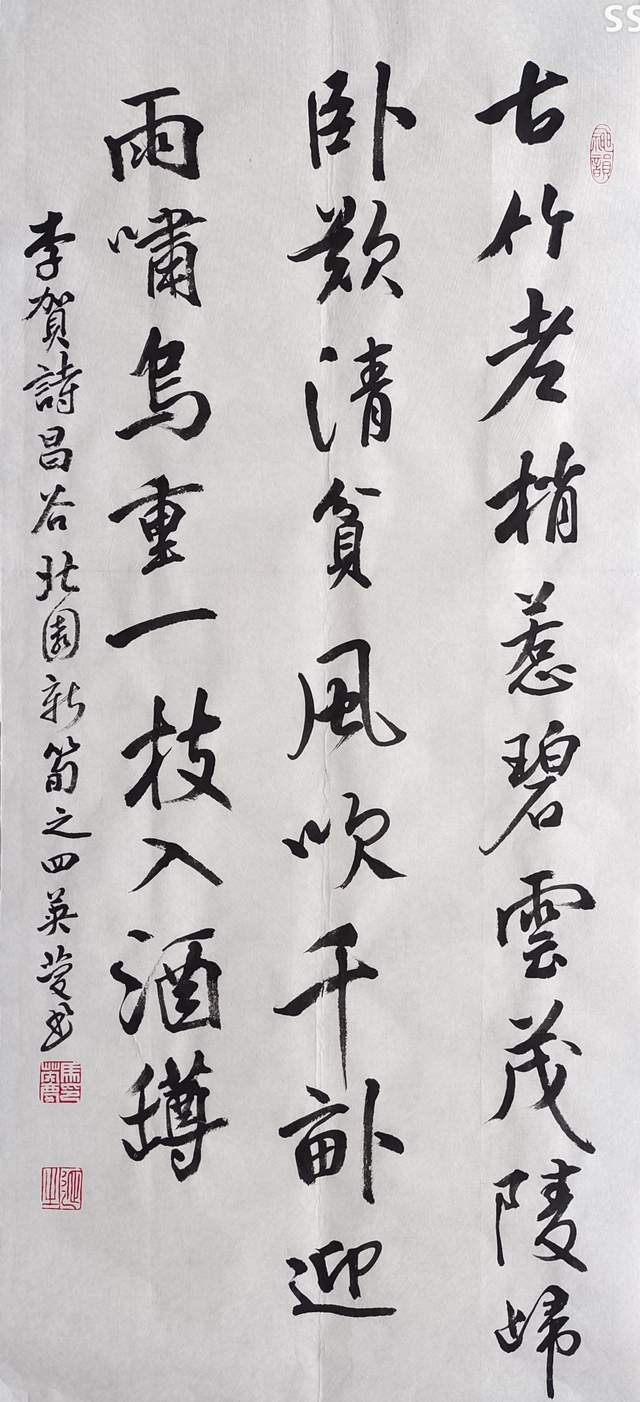 SS
神韻
古竹老梢惹碧雲茂陵歸
卧歎清貧風吹千畝迎
雨嘯鳥重一枝入酒罇
李賀詩昌谷北園新筍之四英蔓书